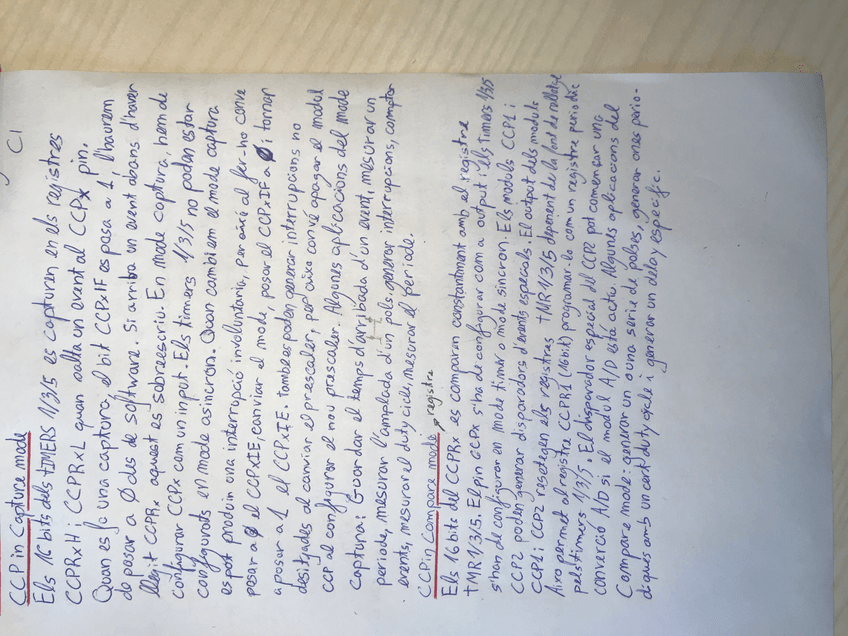 C1
CCP in Capture mode
Els 16 bits dels TIMERS 1/3/5 es capturen en els registres
CCPRxH i CCPRxL quan salta un event al CCPx pin.
Quan es fa una captura, el bit CCPxIF es posa a 1, l'haurem
de posar a 0 des de software. Si arriba un event abans d'haver
llegit CCPRx aquest es sobreescriu. En mode captura, hem de
configurar CCPx com un input. Els timers 1/3/5 no poden estar
configurats en mode asíncron. Quan canviem el mode captura
es pot produir una interrupció involuntaria, per això al fer-ho convé
posar a 0 el CCPxIE, canviar el mode, posar el CCPxIF a 0 i tornar
a posar a 1 el CCPxIE. també es poden generar interrupcions no
desitjades al canviar el prescaler, per això convé apagar el modul
CCP al configurar el nou prescaler. Algunes aplicacions del mode
Captura: Guardar el temps d'arribada d'un event, mesurar un
periode, mesurar l'amplada d'un pols, generar interrupcions, comptar
events, mesurar el duty cicle, mesurar el periode.
CCP in Compare mode registre
Els 16 bits del CCPRx es comparen constantment amb el registre
TMR 1/3/5. El pin CCPx s'ha de configurar com a output i els timers 1/3/5
s'han de configurar en mode timer o mode síncron. Els moduls CCP1 i
CCP2 poden generar disparadors d'events especials. El output dels moduls
CCP1 i CCP2 resetegen els registres TMR 1/3/5 depenent de la font de rellotge
Aixo permet al registre CCPR1 (16bit) programar-lo com un registre periodic
pels timers 1/3/5. El disparador especial del CCP2 pot començar una
conversió A/D si el modul A/D està actu. Algunes aplicacions del
Compare mode: generar un o una serie de polses, generar ones perio-
diques amb un cert duty cicle i generar un delay especific.